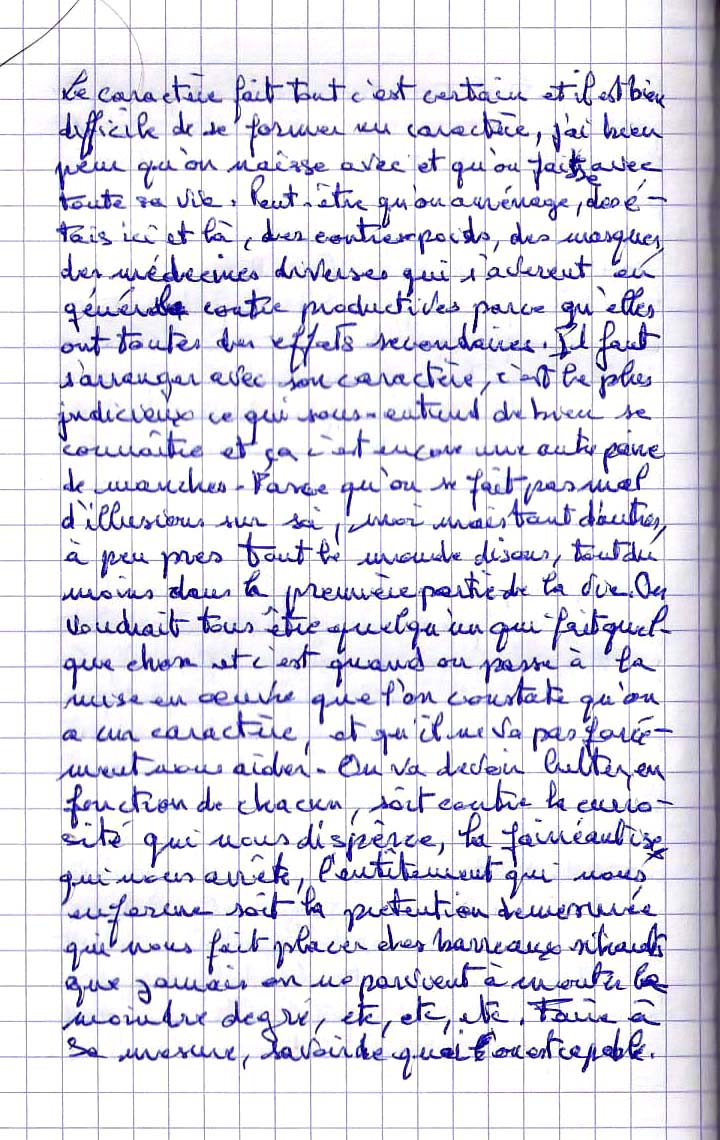 Le caractère fait tout c'est certain et il est bien
difficile de se former un caractère, j'ai bien
peur qu'on naisse avec et qu'on fasse avec
toute sa vie. Peut-être qu'on aménage, des é-
tais ici et là, des contrepoids, des masques,
des médecines diverses qui s'avèrent en
général contre productives parce qu'elles
ont toutes des effets secondaires. Il faut
s'arranger avec son caractère, c'est le plus
judicieux ce qui sous-entend de bien se
connaître et ça c'est encore une autre paire
de manches. Parce qu'on se fait pas mal
d'illusions sur soi, moi mais tant d'autres,
à peu près tout le monde disons, tout du
moins dans la première partie de la vie. On
voudrait tous être quelqu'un qui fait quel-
que chose et c'est quand on passe à la
mise en oeuvre que l'on constate qu'on
a un caractère, et qu'il ne va pas forcé-
ment nous aider. On va devoir lutter, en
fonction de chacun, soit contre la curio-
sité qui nous disperce, la fainéantise
qui nous arrête, l'entêtement qui nous
enferme soit la prétention demesurée
qui nous fait placer des barreaux si hauts
que jamais on ne parvient à monter le
moindre degré, etc, etc, etc. Faire à
sa mesure, savoir de quoi l'on est capable.